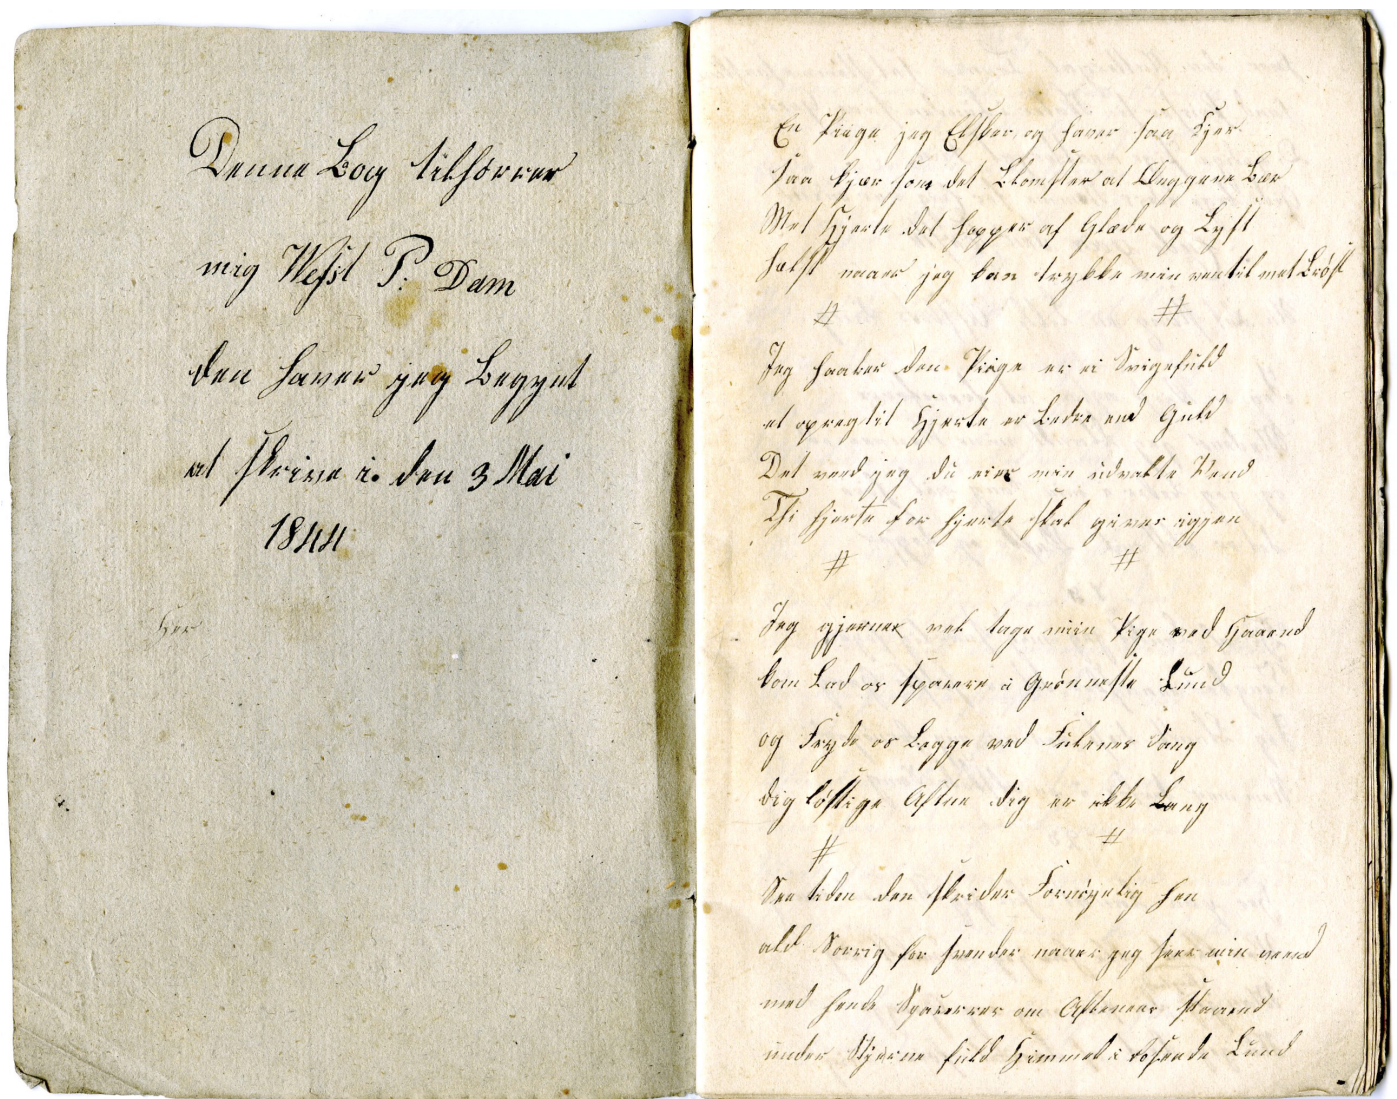 Denne Bog tilhørrer
mig West P: Dam
den haver jeg Begynt
at skrive i. den 3 Mai
1844
her
En Piige jeg Elsker og haver saa kjer
saa kjær som det Blomster at Væggene Bær
Met Hjerte det hopper af Glæde og Lyst
helst naaer jeg kan trykke min ven til met Brøst
#     #
Jeg haaber den Piige er ei Svigefuld
et opregtit Hjerte er Bedre end Guld
Det veed jeg du eier min udvalte Vend
Thi hjerte for hjerte skal gives iggen
#     #
Jeg gjerner vel tage miin Pige ved Haaend
kom Lad os spasere i Grønneste Lund
og Fryde os Begge ved Fulenes Sang
dig løstige Aftne dig er ikke Lang
#     #
See tiden den skrider Fornøyelig hen
ald Sorrig for svender naaer jeg seer min veend
med hende Spaserrer om Aftenens staaend
under Stjerne fuld Himmel i Løsende Lund